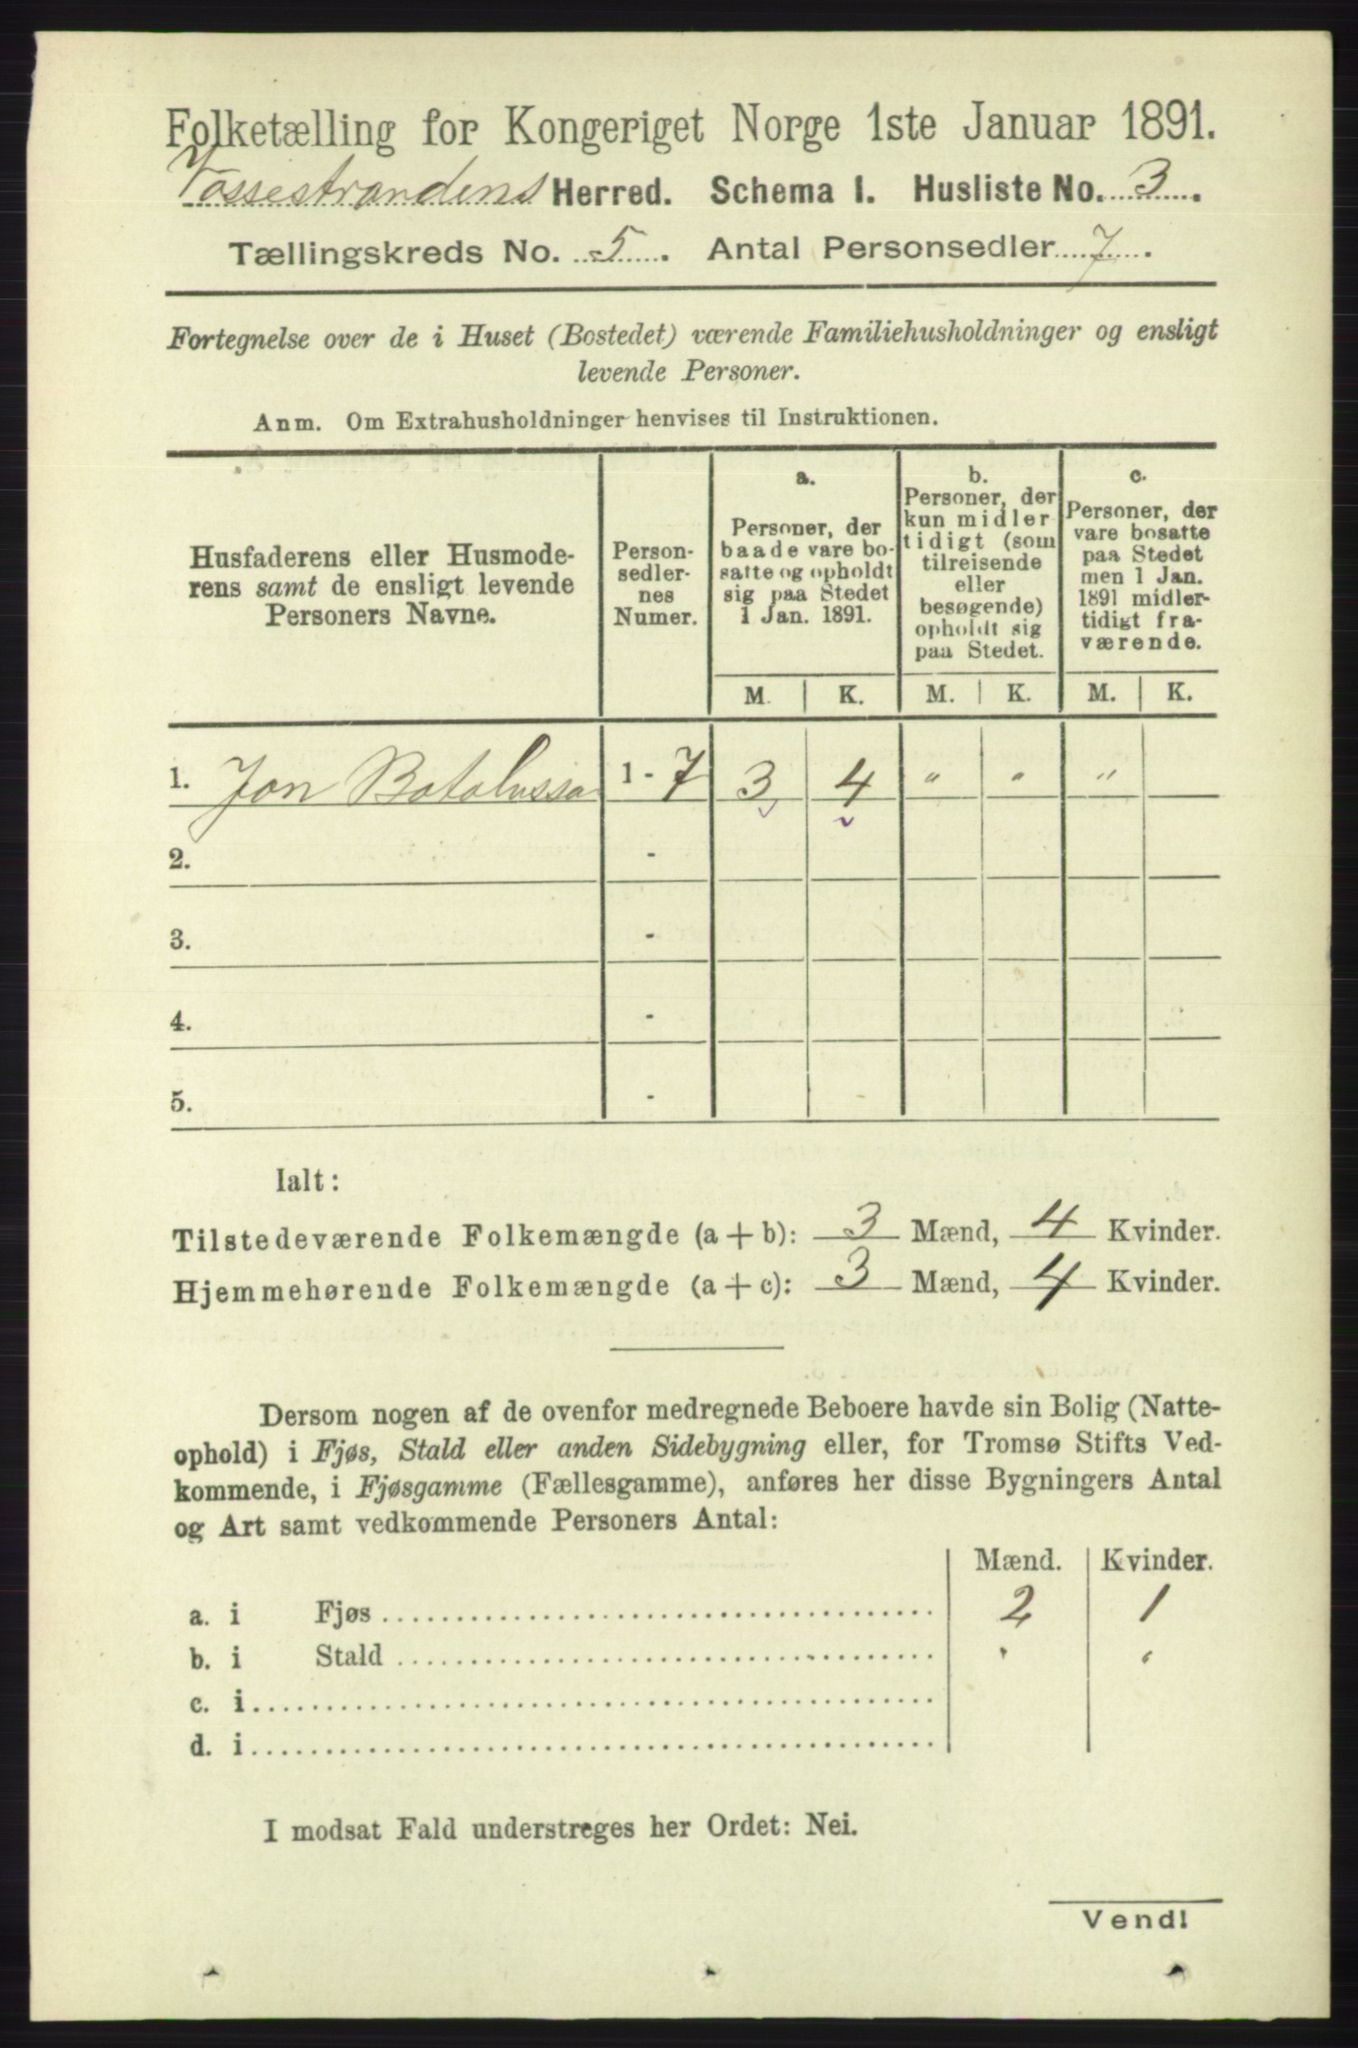 Folketælling for Kongeriget Norge 1ste Januar 1891.
Vossestrandens Herred. Schema I. Husliste No. 3.
Tællingskreds No. 5. Antal Personsedler 7.
Fortegnelse over de i Huset (Bostedet) værende Familiehusholdninger og ensligt
levende Personer.
Anm. Om Extrahusholdninger henvises til Instruktionen.
Husfaderens eller Husmode-
rens samt de ensligt levende
Personers Navne.
Person-
sedler-
nes
Numer.
a.
Personer, der
baade vare bo-
satte og opholdt
sig paa Stedet
1 Jan. 1891.
b.
Personer, der
kun midler
tidigt (som
tilreisende
eller
besøgende)
opholdt sig
paa Stedet.
c.
Personer, der
vare bosatte
paa Stedet
men 1 Jan.
1891 midler-
tidigt fra-
værende.
M. K. M. K. M. K.
1. Jon Botolvssa 1 - 7 3 4 " " "
2. -
3. -
4. -
5. -
Ialt:
Tilstedeværende Folkemængde (a + b): 3 Mænd, 4 Kvinder.
Hjemmehørende Folkemængde (a + c): 3 Mænd, 4 Kvinder.
Dersom nogen af de ovenfor medregnede Beboere havde sin Bolig (Natte-
ophold) i Fjøs, Stald eller anden Sidebygning eller, for Tromsø Stifts Ved-
kommende, i Fjøsgamme (Fællesgamme), anføres her disse Bygningers Antal
og Art samt vedkommende Personers Antal:
Mænd. Kvinder.
a. i Fjøs 2 1
b. i Stald " "
c. i
d. i
I modsat Fald understreges her Ordet: Nei.
Vend!